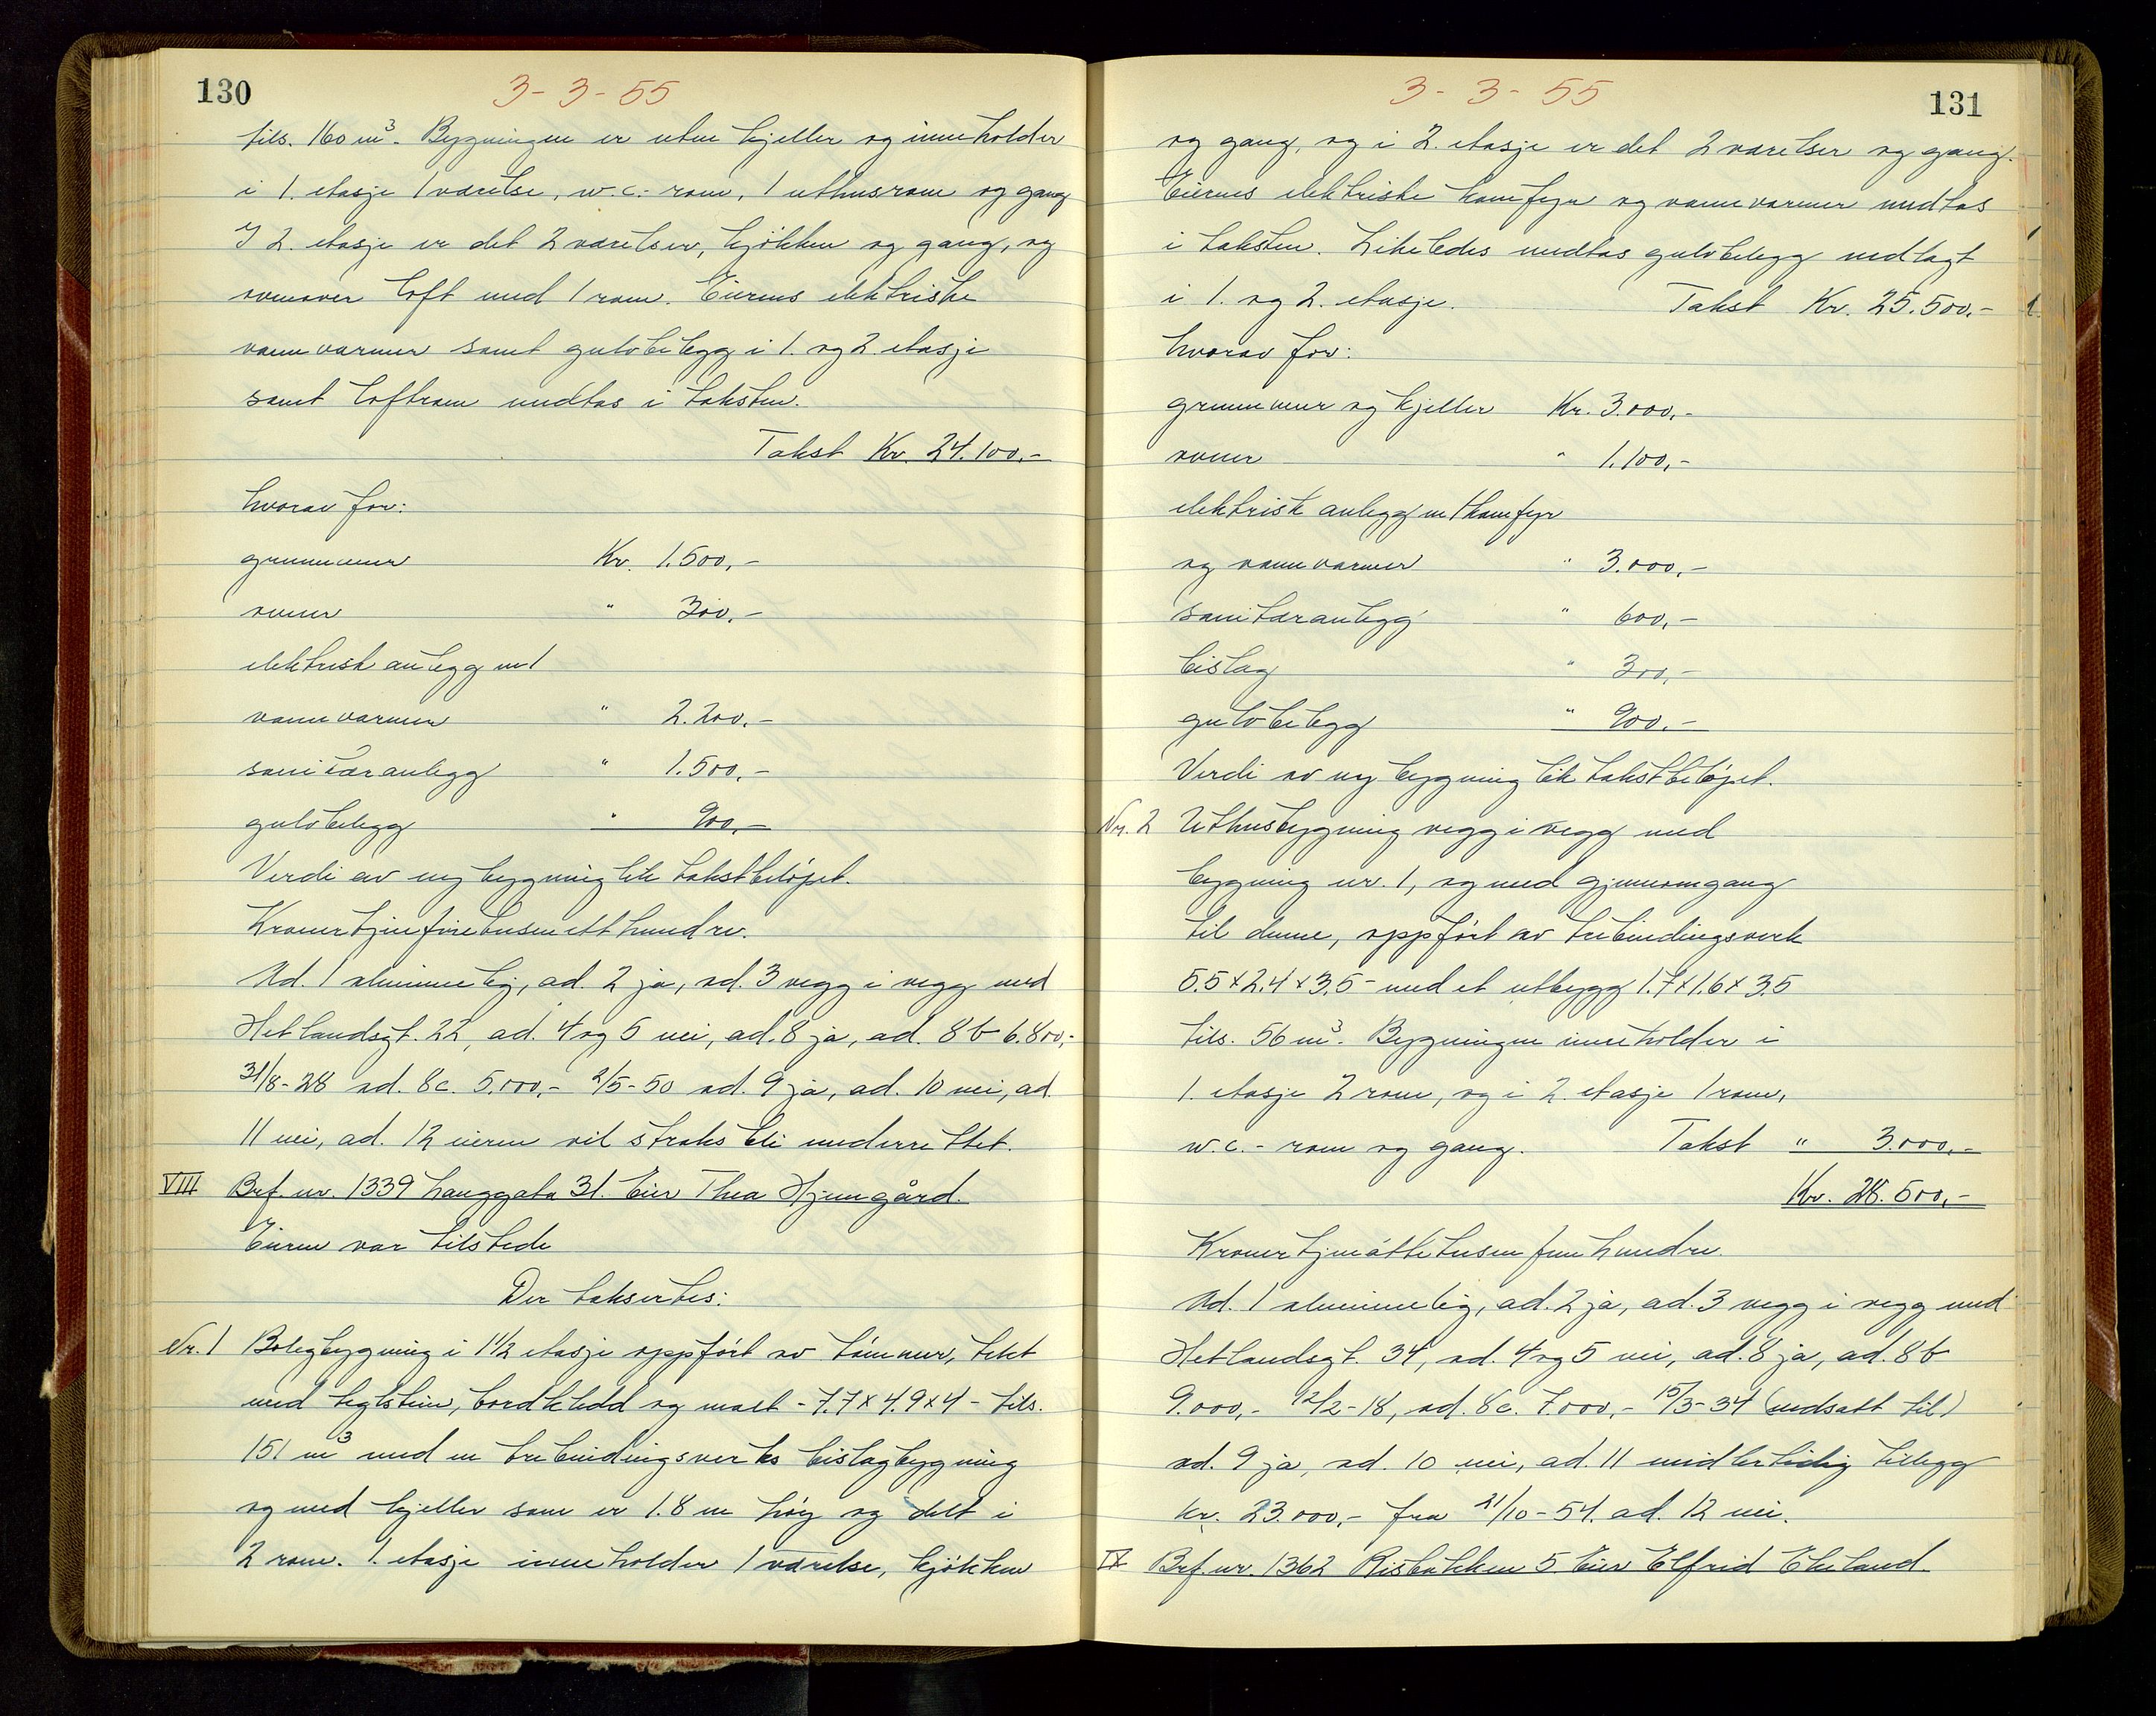 130
3-3-55
tils. 160 m³. Bygningen er uten kjeller og inneholder
i 1. etasje 1 værelse, w.c.-rom, 1 uthusrom og gang
I 2. etasje er det 2 værelser, kjøkken og gang, og
ovenover loft med 1 rom. Eierens elektriske
vannvarmer samt gulvbelegg i 1. og 2. etasje
samt loftrom medtas i taksten.
Takst Kr. 24.100,-
hvorav for:
grunnmur Kr. 1.500,-
ovner " 300,-
elektrisk anlegg m/
vannvarmer " 2.200,-
sanitæranlegg " 1.500,-
gulvbelegg " 900,-
Verdi av ny bygning lik takstbeløpet.
Kroner tjuefiretusenetthundre.
Ad. 1 alminnelig, ad. 2 ja, ad. 3 vegg i vegg med
Hetlandsgt. 22, ad. 4 og 5 nei, ad. 8 ja, ad. 8 b 6.800,-
31/8-28 ad. 8c. 5.000,- 2/5-50 ad. 9 ja, ad. 10 nei, ad.
11 nei, ad. 12 eieren vil straks bli underrettet.
VIII Brf. nr. 1339 Langgata 31. Eier Thea Hjemgård.
Eieren var tilstede
Der taksertes:
Nr. 1 Boligbygning i 1 1/2 etasje oppført av tømmer, tekt
med teglstein, bordkledd og malt - 7.7 x 4.9 x 4 - tils.
151 m³ med en trebindingsverks bislagbygning
og med kjeller som er 1.8 m høy og delt i
2 rom. 1. etasje inneholder 1 værelse, kjøkken
3-3-55
131
og gang, og i 2. etasje er det 2 værelser og gang.
Eierens elektriske komfyr og vannvarmer medtas
i taksten. Likeledes medtas gulvbelegg nedlagt
i 1. og 2. etasje. Takst Kr. 25.500,-
hvorav for:
grunnmur og kjeller Kr. 3.000,-
ovner " 1.100,-
elektrisk anlegg m/komfyr
og vannvarmer " 3.000,-
sanitæranlegg " 600,-
bislag " 300,-
gulvbelegg " 900,-
Verdi av ny bygning lik takstbeløpet.
Nr. 2 Uthusbygning vegg i vegg med
bygning nr. 1, og med gjennomgang
til denne, oppført av trebindingsverk
5.5 x 2.4 x 3.5 - med et utbygg 1.7 x 1.6 x 3.5
tils. 56 m³. Bygningen inneholder i
1. etasje 2 rom, og i 2. etasje 1 rom,
w.c.-rom og gang. Takst " 3.000,-
Kr. 28.500,-
Kroner tjueåttetusenfemhundre.
Ad. 1 alminnelig, ad. 2 ja, ad. 3 vegg i vegg med
Hetlandsgt. 34, ad. 4 og 5 nei, ad. 8 ja, ad. 8 b
9.000,- 12/2-18, ad. 8c. 7.000,- 15/3-34 (nedsatt til)
ad. 9 ja, ad. 10 nei, ad. 11 midlertidig tillegg
kr. 23.000,- fra 21/10-54. ad. 12 nei.
IX Brf. nr. 1362 Risbakken 5. Eier Elfrid Ekeland.